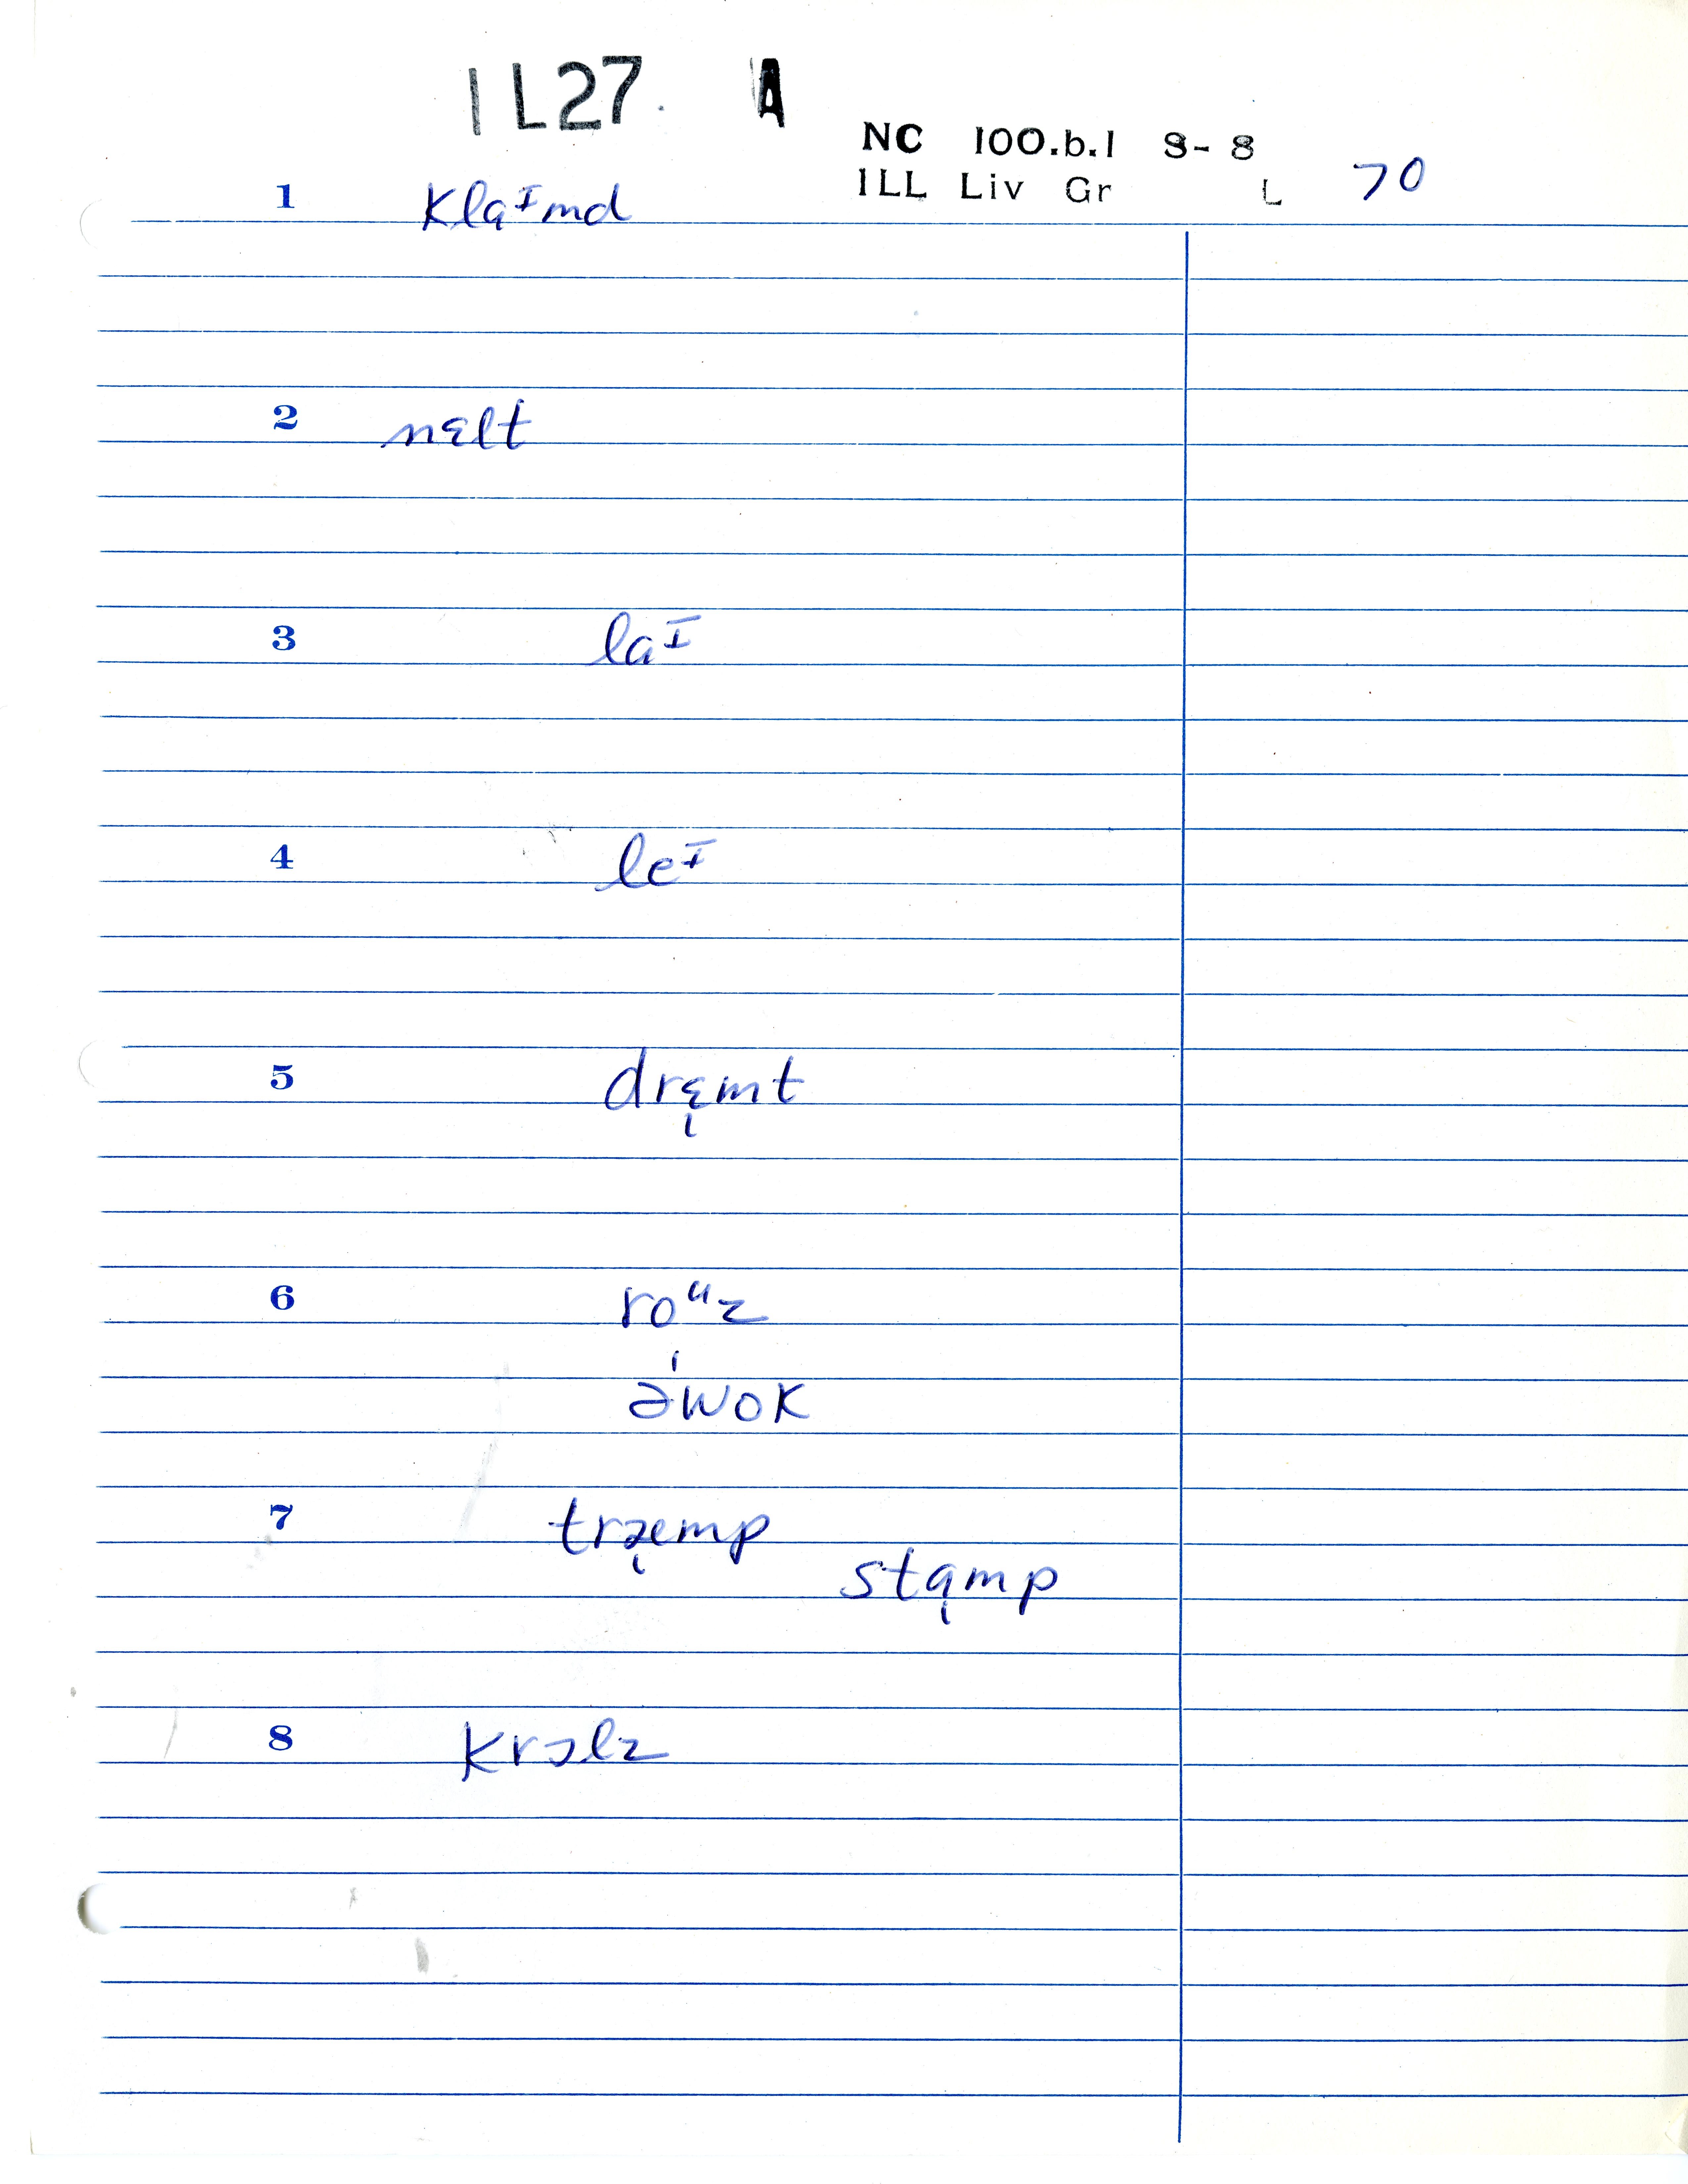 1 L27. A
NC 100.b.1 S- 8
ILL Liv Gr L 70
1 klaᶦmd
2 nɛlt
3 laᶦ
4 leᶦ
5 drɛ̨mt
6 roᵘz
əˈwok
7 træ̨mp
stąmp
8 krɔlz